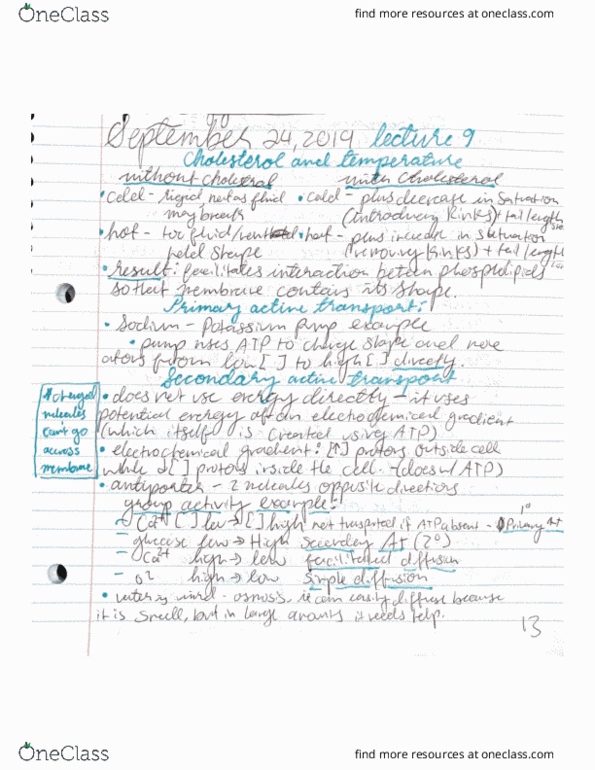 OneClass
find more resources at oneclass.com
September 24, 2019 lecture 9
Cholesterol and temperature
without cholesterol
with cholesterol
• cold - rigid not as fluid
may break
• cold - plus decrease in saturation
(introducing kinks) + tail length
• hot - too fluid / won't
hold shape
• hot - plus increase in saturation
(removing kinks) + tail length
• result: facilitates interaction between phospholipids
so that membrane contains its shape.
Primary active transport:
• Sodium - Potassium pump example
• pump uses ATP to change shape and move
from low [ ] to high [ ] directly.
Secondary active transport
* charged
molecules
can't go
across
membrane
• does not use energy directly - it uses
potential energy of an electrochemical gradient
(which itself is created using ATP)
• electrochemical gradient: [↑] protons outside cell
while ↓[ ] protons inside the cell. (does w/ ATP)
• antiporter - 2 molecules opposite directions
group activity example:
- Ca²⁺ [ ] low → [ ] high not transported if ATP absent - 1° Primary At
- glucose low → High Secondary At (2°)
- Ca²⁺ high → low facilitated diffusion
- O² high → low simple diffusion
• water is weird - osmosis, it can easily diffuse because
it is small, but in large amounts it needs help.
13
OneClass
find more resources at oneclass.com